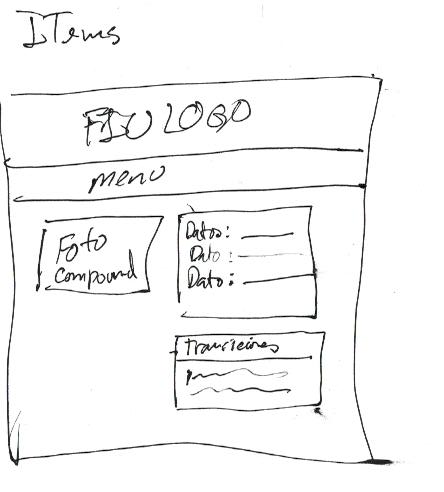 ITems
FIU LOGO
menu
Foto
compound
Datos:
Dato:
Dato:
transiciones